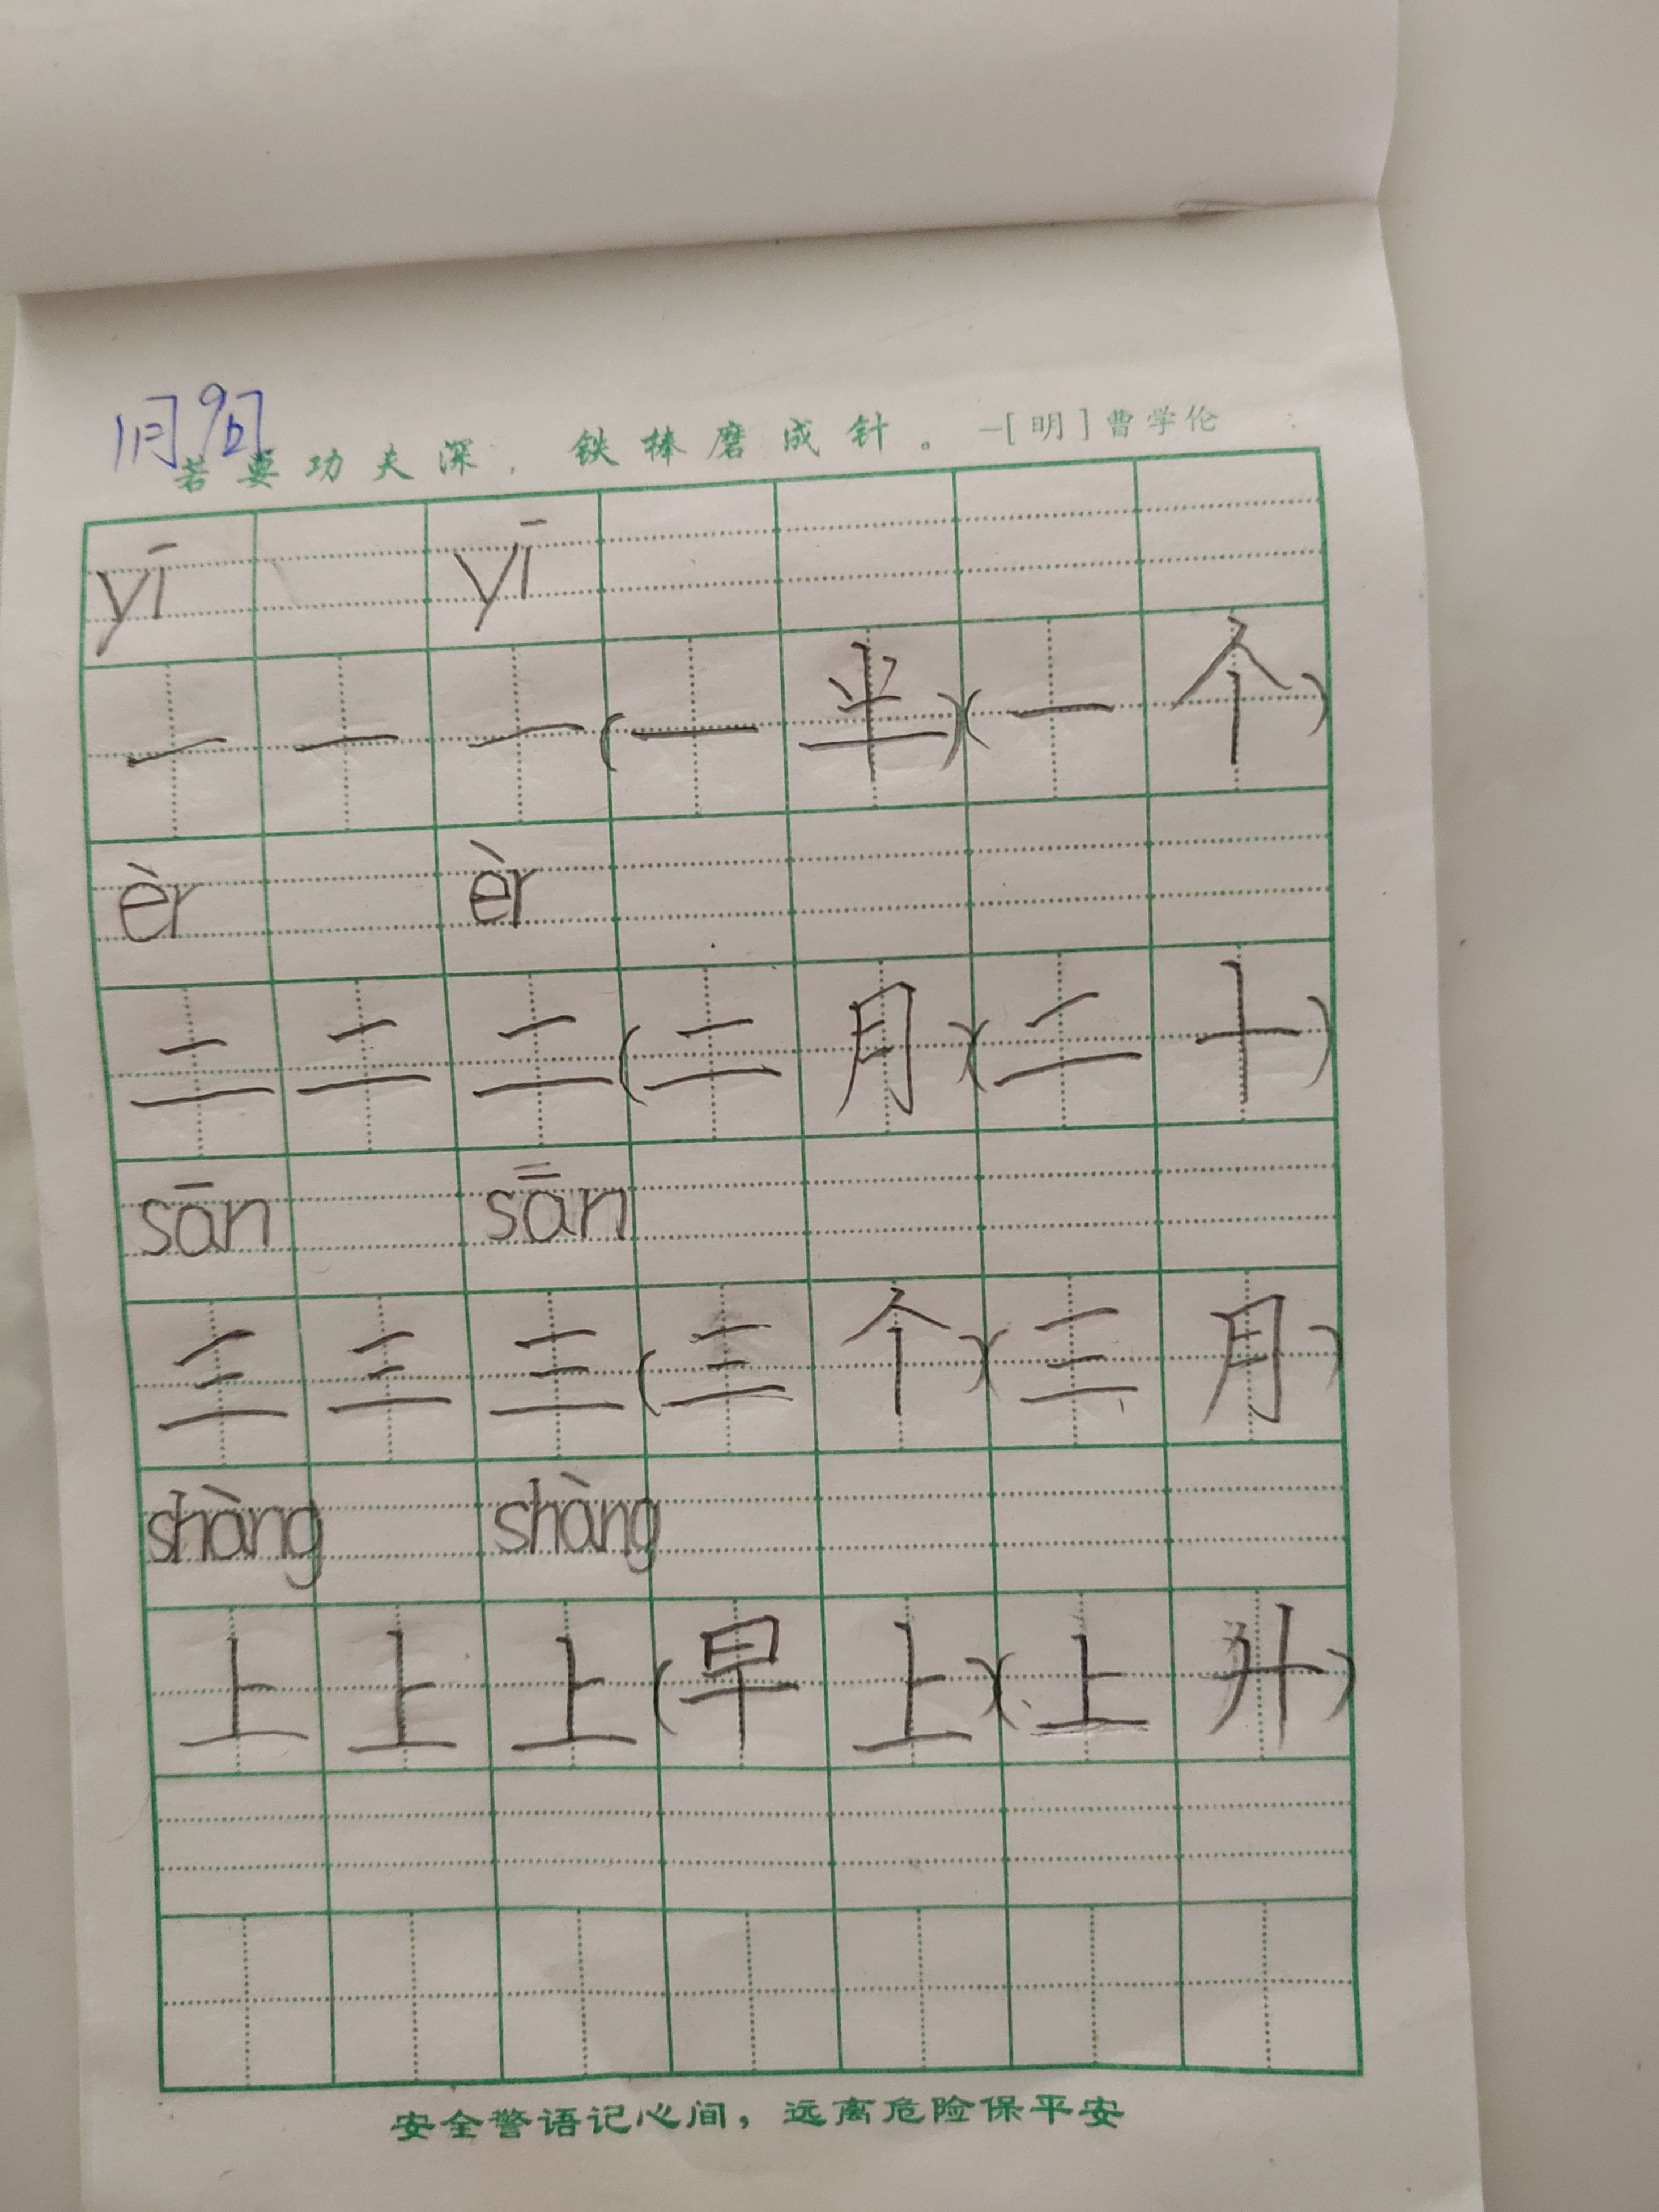 1月9日
若要功夫深,铁棒磨成针。—[明]曹学伦
yī yī
一 一 一 (一 半) (一 个)
èr èr
二 二 二 (二 月) (二 十)
sān sān
三 三 三 (三 个) (三 月)
shàng shàng
上 上 上 (早 上) (上 升)
安全警语记心间，远离危险保平安